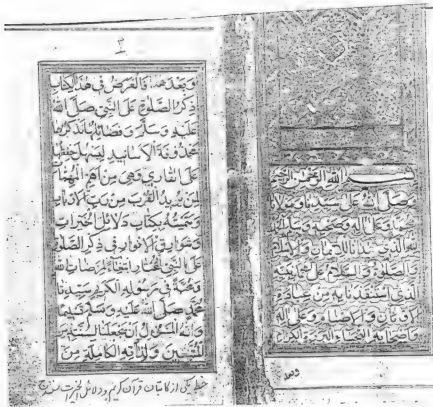 بسم الله الرحمن الرحيم
وصلى الله على سيدنا ومولانا
محمد وعلى آله وصحبه وسلم
الحمد لله الذي هدانا للإيمان والإسلام
والصلوة والسلام على محمد نبيه
الذي استنقذنا به من عبادة
الاوثان والاصنام وعلى آله
واصحابه النجباء البررة الكرام
وبعد
وبعد هذا فالغرض في هذا الكتاب
ذكر الصلوة على النبي صلى الله
عليه وسلم وفضائلها نذكرها
محذوفة الاسانيد ليسهل حفظها
على القاري وهي من اهم المهمات
لمن يريد القرب من رب الارباب
وسميته بكتاب دلائل الخيرات
وشوارق الانوار في ذكر الصلوة
على النبي المختار ابتغاء لمرضات الله
ومحبة في رسوله الكريم سيدنا
محمد صلى الله عليه وسلم تسليما
والله المسئول ان يجعلنا لسنته من
التابعين ولذاته الكاملة من
خط یکی از کاتبان قرآن کریم و دلائل الخیرات